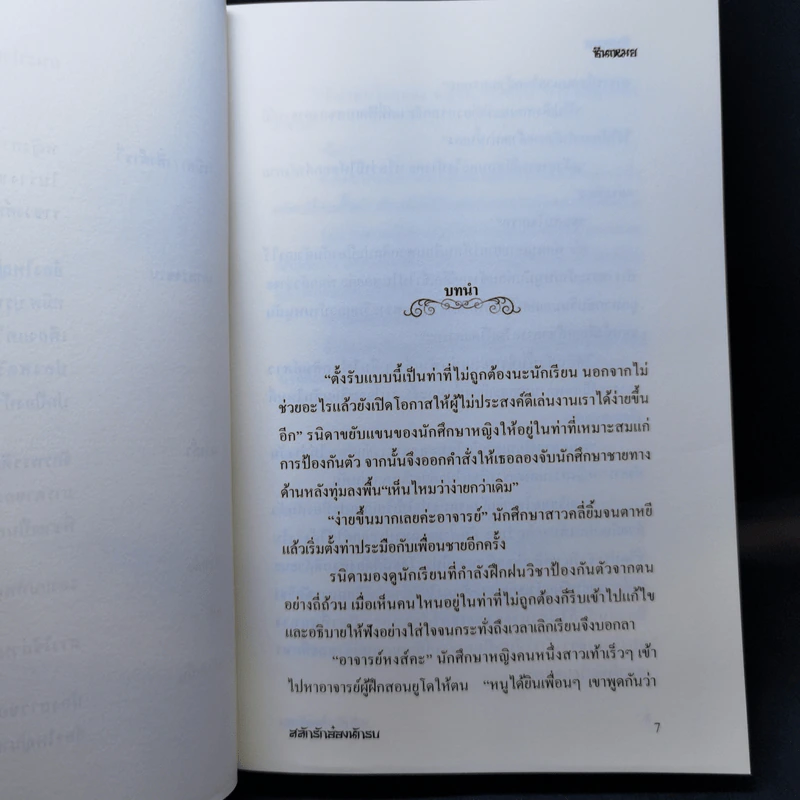 บทนำ
“ตั้งรับแบบนี้เป็นท่าที่ไม่ถูกต้องนะนักเรียน นอกจากไม่
ช่วยอะไรแล้วยังเปิดโอกาสให้ผู้ไม่ประสงค์ดีเล่นงานเราได้ง่ายขึ้น
อีก” รนิดาขยับแขนของนักศึกษาหญิงให้อยู่ในท่าที่เหมาะสมแก่
การป้องกันตัว จากนั้นจึงออกคำสั่งให้เธอลองจับนักศึกษาชายทาง
ด้านหลังทุ่มลงพื้น“เห็นไหมว่าง่ายกว่าเดิม”
“ง่ายขึ้นมากเลยค่ะอาจารย์” นักศึกษาสาวคลี่ยิ้มจนตาหยี
แล้วเริ่มตั้งท่าประมือกับเพื่อนชายอีกครั้ง
รนิดามองดูนักเรียนที่กำลังฝึกฝนวิชาป้องกันตัวจากตน
อย่างถี่ถ้วน เมื่อเห็นคนไหนอยู่ในท่าที่ไม่ถูกต้องก็รีบเข้าไปแก้ไข
และอธิบายให้ฟังอย่างใส่ใจจนกระทั่งถึงเวลาเลิกเรียนจึงบอกลา
“อาจารย์หงส์คะ” นักศึกษาหญิงคนหนึ่งสาวเท้าเร็วๆ เข้า
ไปหาอาจารย์ผู้ฝึกสอนยูโดให้ตน “หนูได้ยินเพื่อนๆ เขาพูดกันว่า
7